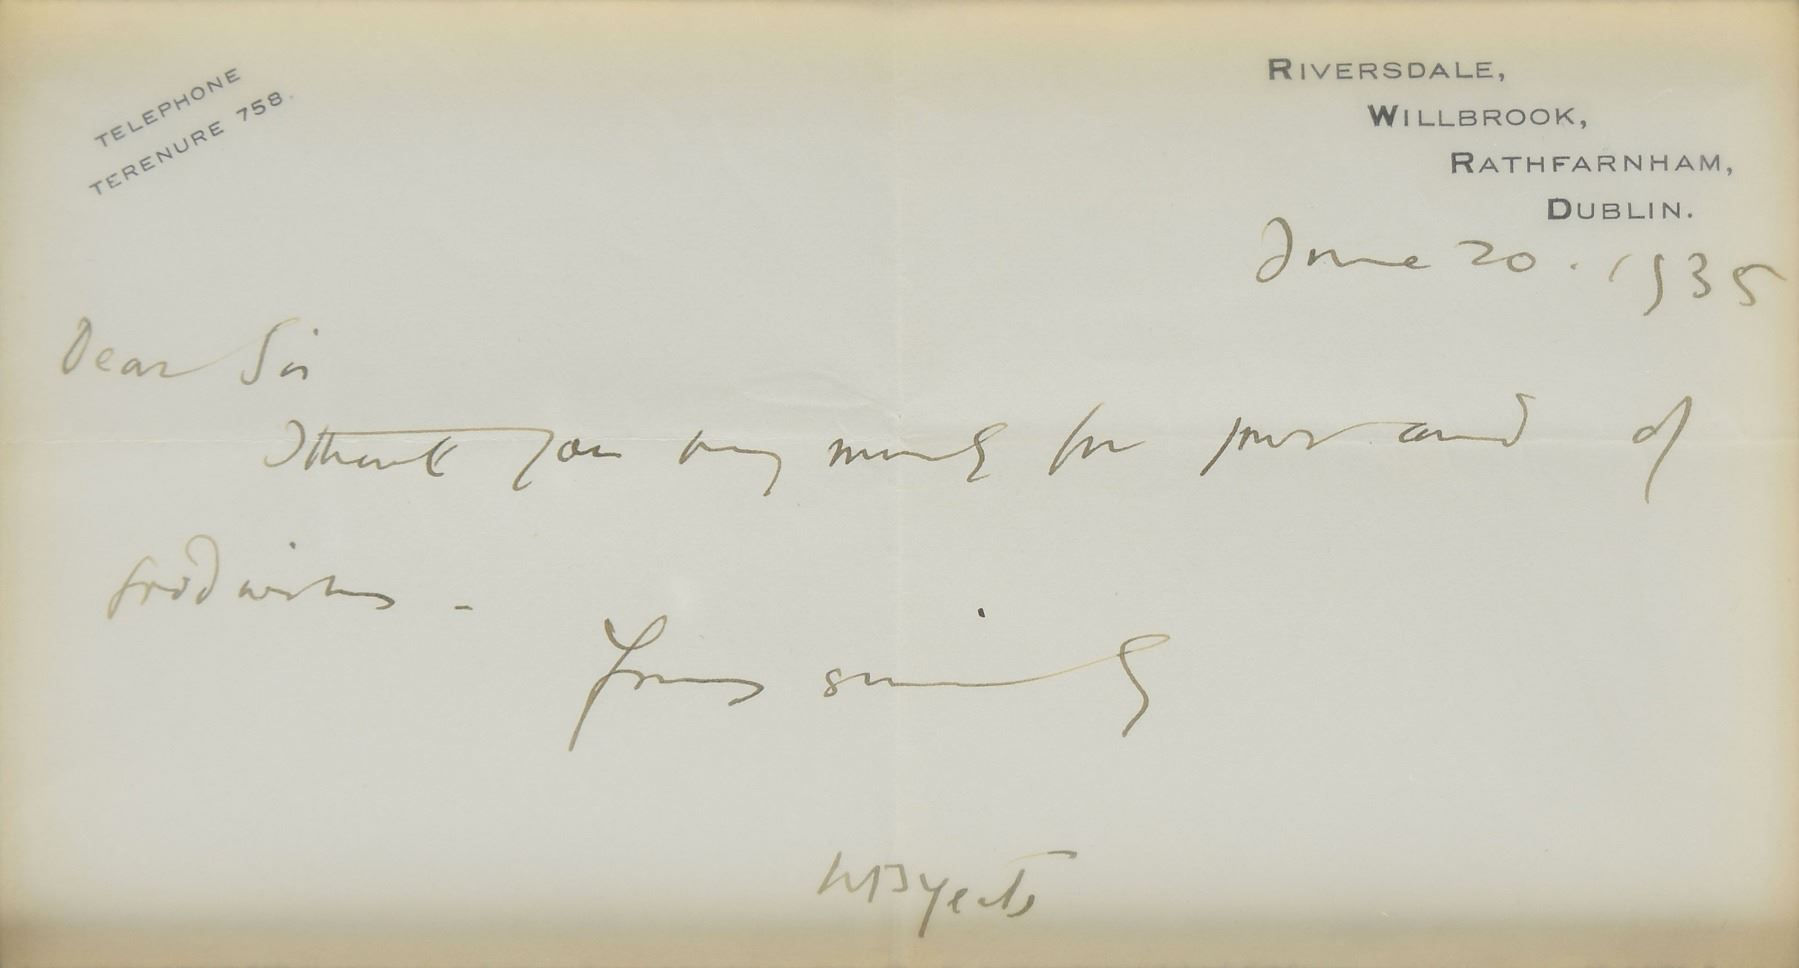 TELEPHONE
TERENURE 758.
RIVERSDALE,
WILLBROOK,
RATHFARNHAM,
DUBLIN.
June 20. 1935
Dear Sir
I thank you very much for your card of
good wishes -
Yours sincerely
WB Yeats